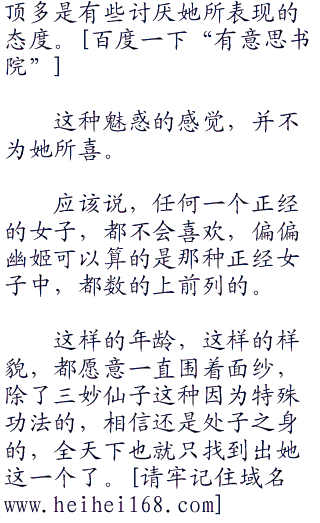 顶多是有些讨厌她所表现的
态度。[百度一下“有意思书
院”]
这种魅惑的感觉，并不
为她所喜。
应该说，任何一个正经
的女子，都不会喜欢，偏偏
幽姬可以算的是那种正经女
子中，都数的上前列的。
这样的年龄，这样的样
貌，都愿意一直围着面纱，
除了三妙仙子这种因为特殊
功法的，相信还是处子之身
的，全天下也就只找到出她
这一个了。[请牢记住域名
www.heihei168.com]